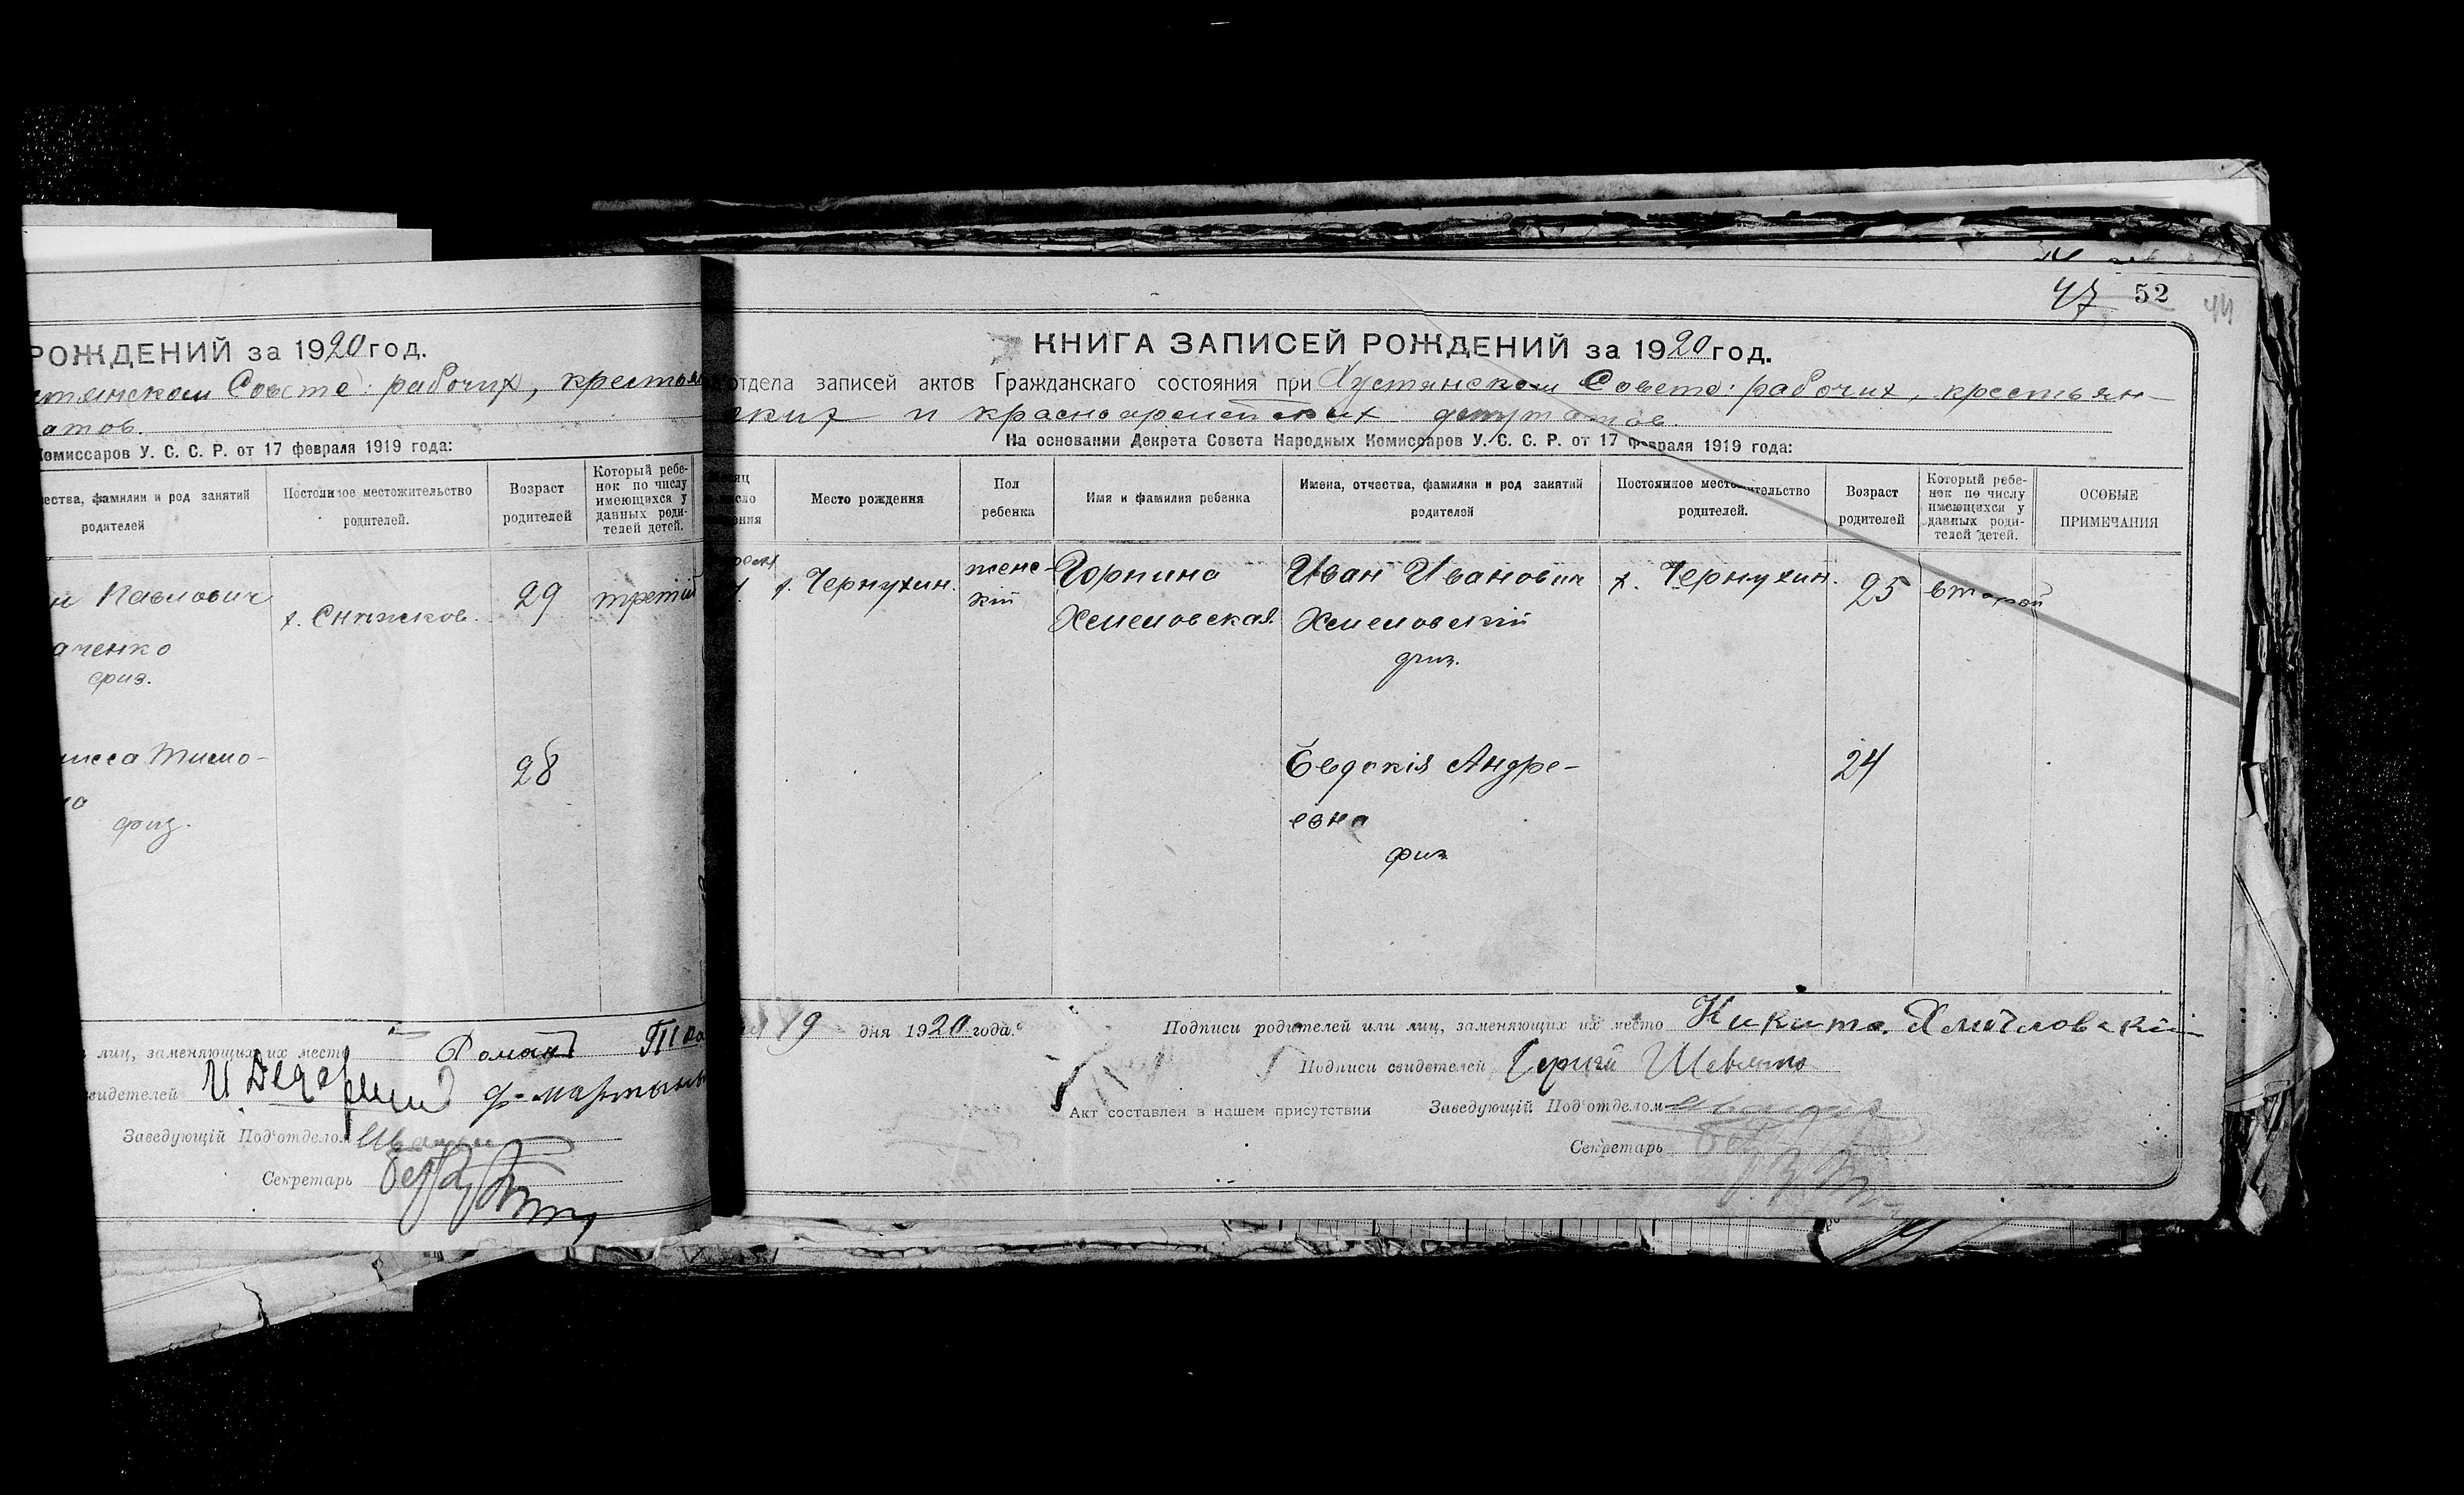 РОЖДЕНИЙ за 1920 год.
тянском Совете: рабочих, крестьян
атов.
Комиссаров У. С. С. Р. от 17 февраля 1919 года:
ества, фамилии и род занятий родителей
Постоянное местожительство родителей.
Возраст родителей
Который ребенок по числу имеющихся у данных родителей детей.
н Павлович
х. Снижков.
29
третий
аченко
физ.
Тимо-
на
28
физ.
лиц, заменяющих их место Роман Тка
свидетелей
Ф. Мартын
Заведующій Под'отделом
Секретарь
47 52
44
КНИГА ЗАПИСЕЙ РОЖДЕНИЙ за 1920 год.
отдела записей актов Гражданскаго состояния при Хустянском Совете: рабочих, крестьян-
ских и красноармейских депутатов.
На основании Декрета Совета Народных Комиссаров У. С. С. Р. от 17 февраля 1919 года:
Место рождения
Пол ребенка
Имя и фамилия ребенка
Имена, отчества, фамилии и род занятий родителей
Постоянное местожительство родителей.
Возраст родителей
Который ребенок по числу имеющихся у данных родителей детей.
ОСОБЫЕ ПРИМЕЧАНИЯ
х. Чернухин.
женс-
кій
Горпина
Хмеловская.
Иван Иванович
Хмеловскій
физ.
х. Чернухин.
25
второй
Евдокія Андре-
евна
физ
24
19 дня 1920 года.
Подписи родителей или лиц, заменяющих их место Никита Хмеловскій
Подписи свидетелей Сергій
Акт составлен в нашем присутствии
Заведующій Под'отделом
Секретарь